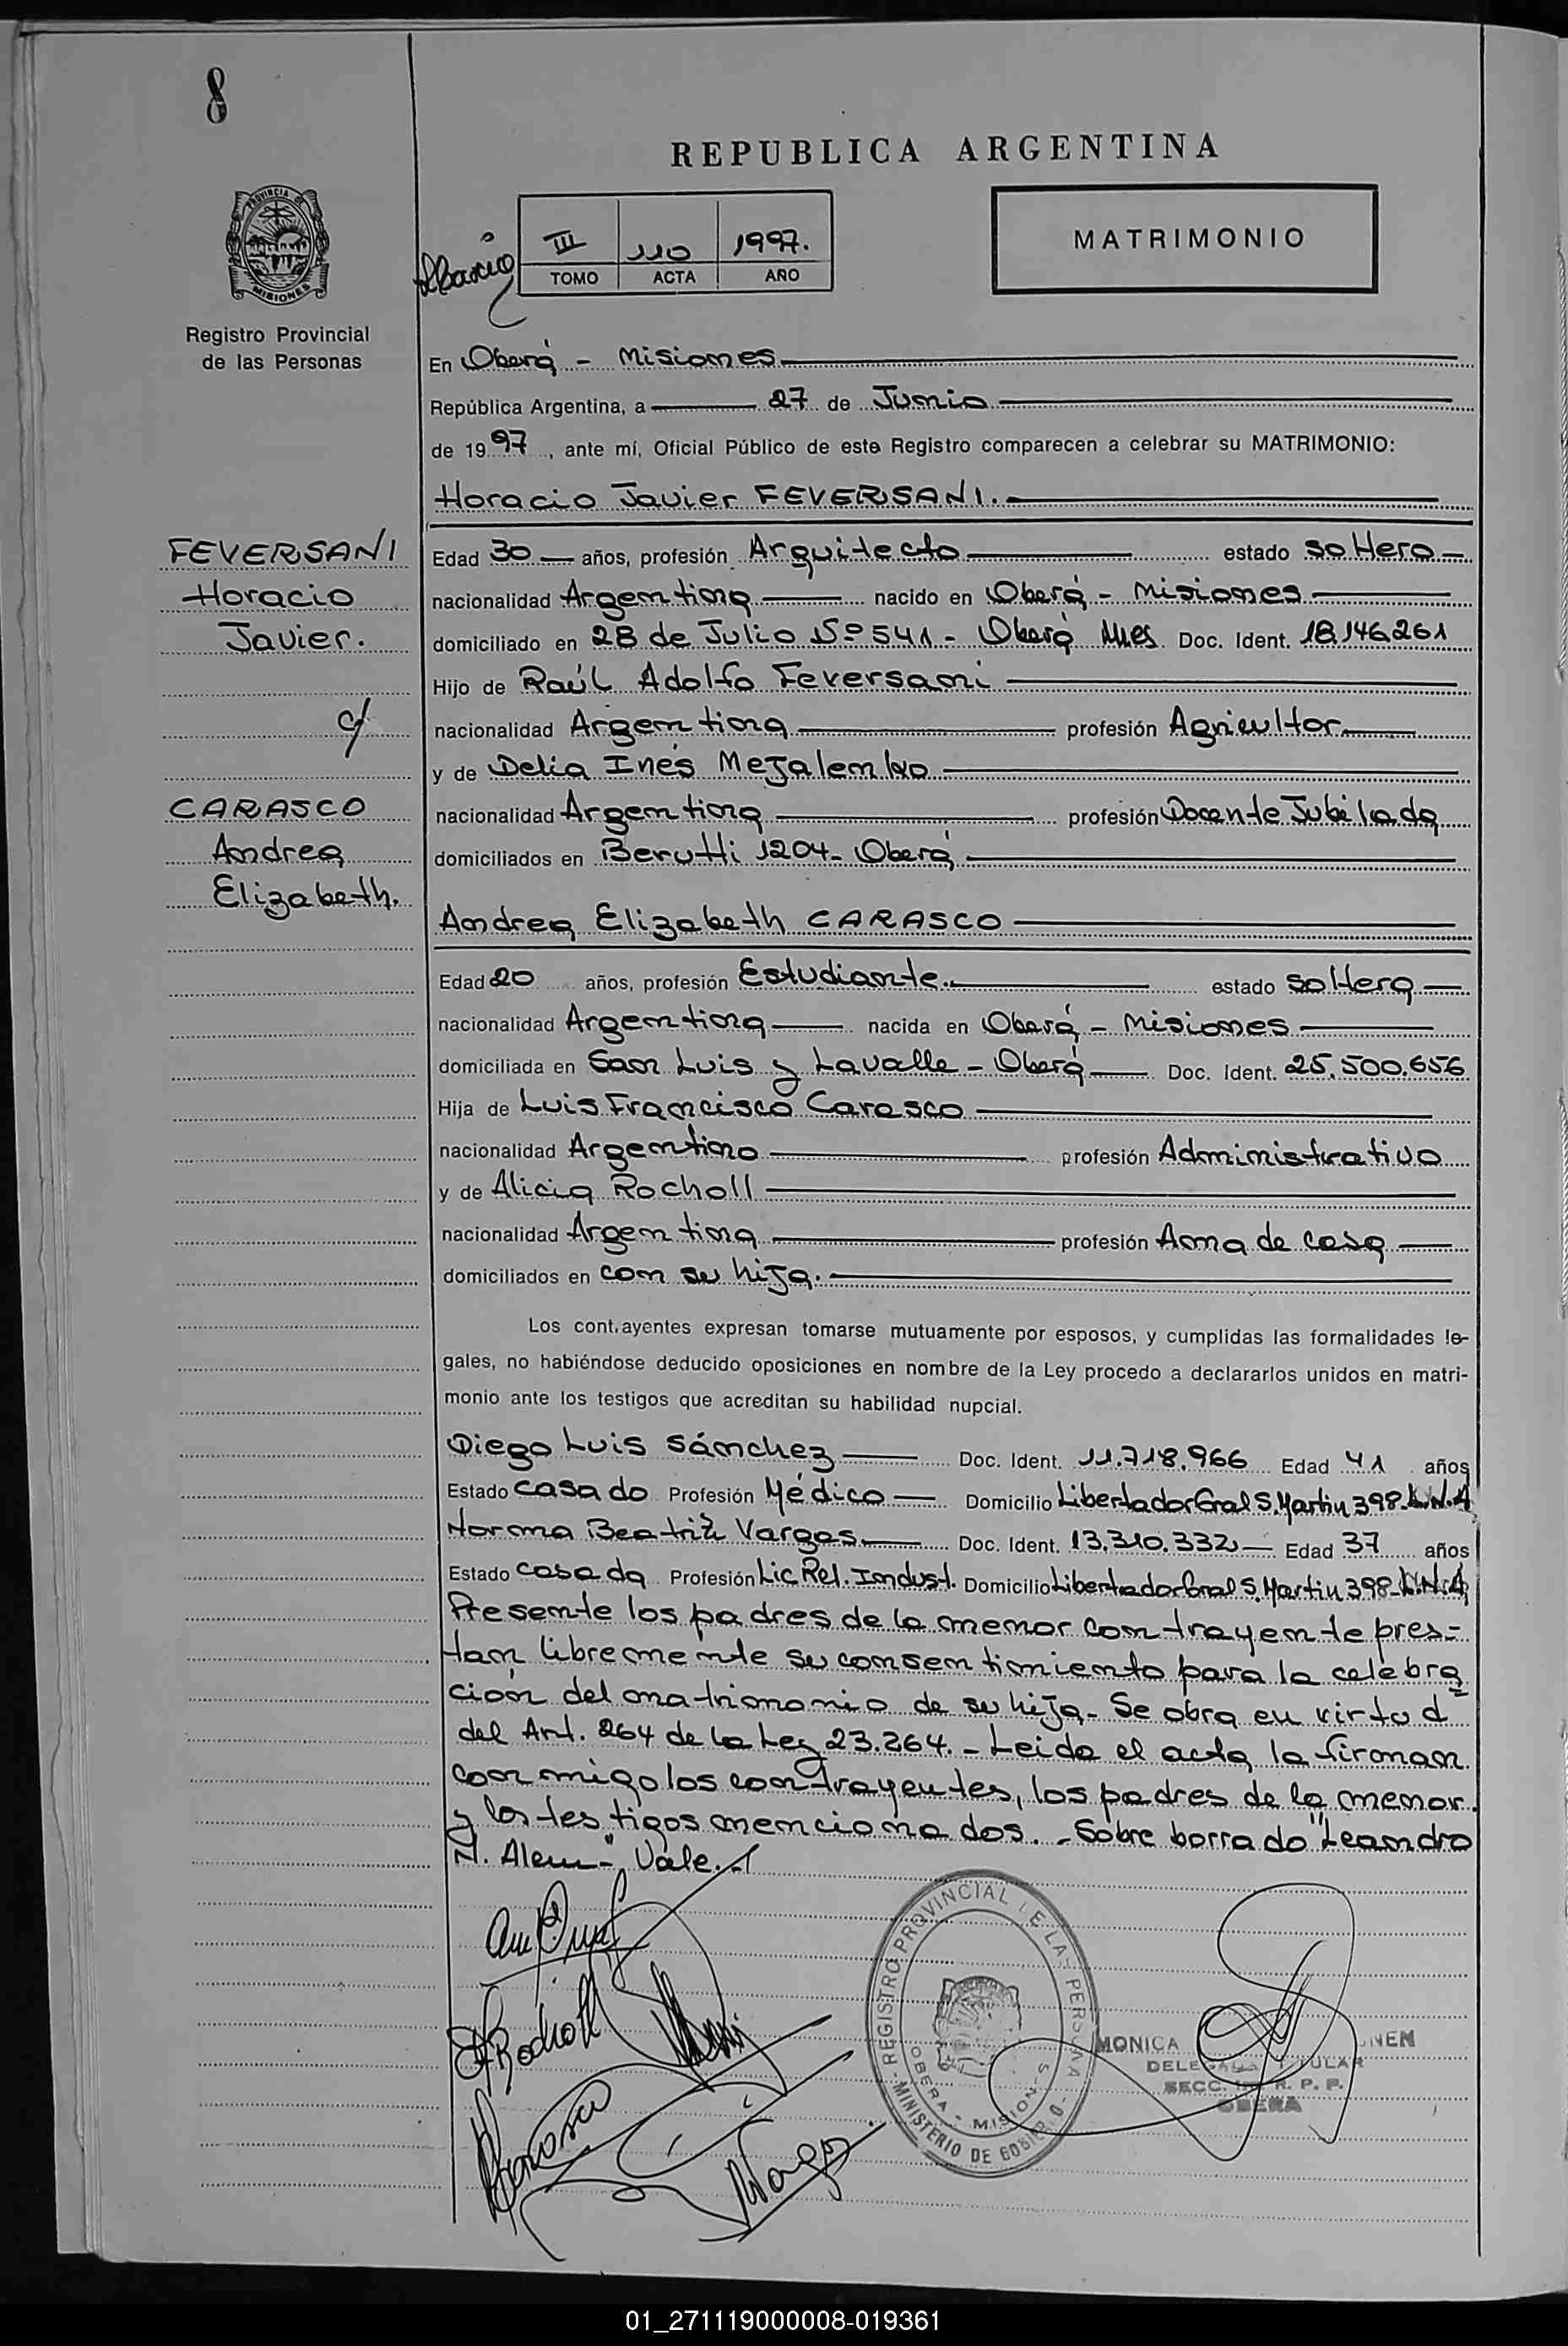 8
REPUBLICA ARGENTINA
PROVINCIA DE
MISIONES
III 110 1997.
TOMO ACTA AÑO
MATRIMONIO
Registro Provincial
de las Personas
En Oberá - Misiones
República Argentina, a 27 de Junio
de 1997, ante mí, Oficial Público de este Registro comparecen a celebrar su MATRIMONIO:
Horacio Javier FEVERSANI.
FEVERSANI
Horacio
Javier.
c/
CARASCO
Andrea
Elizabeth.
Edad 30 años, profesión Arquitecto estado soltero
nacionalidad Argentina nacido en Oberá - Misiones
domiciliado en 28 de Julio Nº 541 - Oberá Mnes. Doc. Ident. 18.146.261
Hijo de Raúl Adolfo Feversani
nacionalidad Argentina profesión Agricultor
y de Delia Inés Mejalenko
nacionalidad Argentina profesión Docente Jubilada
domiciliados en Berutti 1204 - Oberá
Andrea Elizabeth CARASCO
Edad 20 años, profesión Estudiante. estado soltera
nacionalidad Argentina nacida en Oberá - Misiones
domiciliada en San Luis y Lavalle - Oberá Doc. Ident. 25.500.656
Hija de Luis Francisco Carasco
nacionalidad Argentino profesión Administrativo
y de Alicia Rocholl
nacionalidad Argentina profesión Ama de casa
domiciliados en con su hija.
Los cont.ayentes expresan tomarse mutuamente por esposos, y cumplidas las formalidades le-
gales, no habiéndose deducido oposiciones en nombre de la Ley procedo a declararlos unidos en matri-
monio ante los testigos que acreditan su habilidad nupcial.
Diego Luis Sánchez Doc. Ident. 11.718.966 Edad 41 años
Estado casado Profesión Médico Domicilio Libertador Gral S. Martin 398 - L.N.A
Norma Beatriz Vargas Doc. Ident. 13.310.332 Edad 37 años
Estado casada Profesión Lic Rel. Indust. Domicilio Libertador Gral S. Martin 398 - L.N.A
Presente los padres de la menor contrayente pres=
tan libremente su consentimiento para la celebra
=
ción del matrimonio de su hija - Se obra en virtud
del Art. 264 de la Ley 23.264. - Leida el acta, la firman
conmigo los contrayentes, los padres de la menor
y los testigos mencionados. - Sobre borrado "Leandro
N. Alem -" Vale. -
Rocholl
Carasco
NVargas
REGISTRO PROVINCIAL DE LAS PERSONAS
OBERA - MISIONES
MINISTERIO DE GOBIERNO
MONICA
DELEGADA TITULAR
SECC. R. P. P.
OBERA
01_271119000008-019361